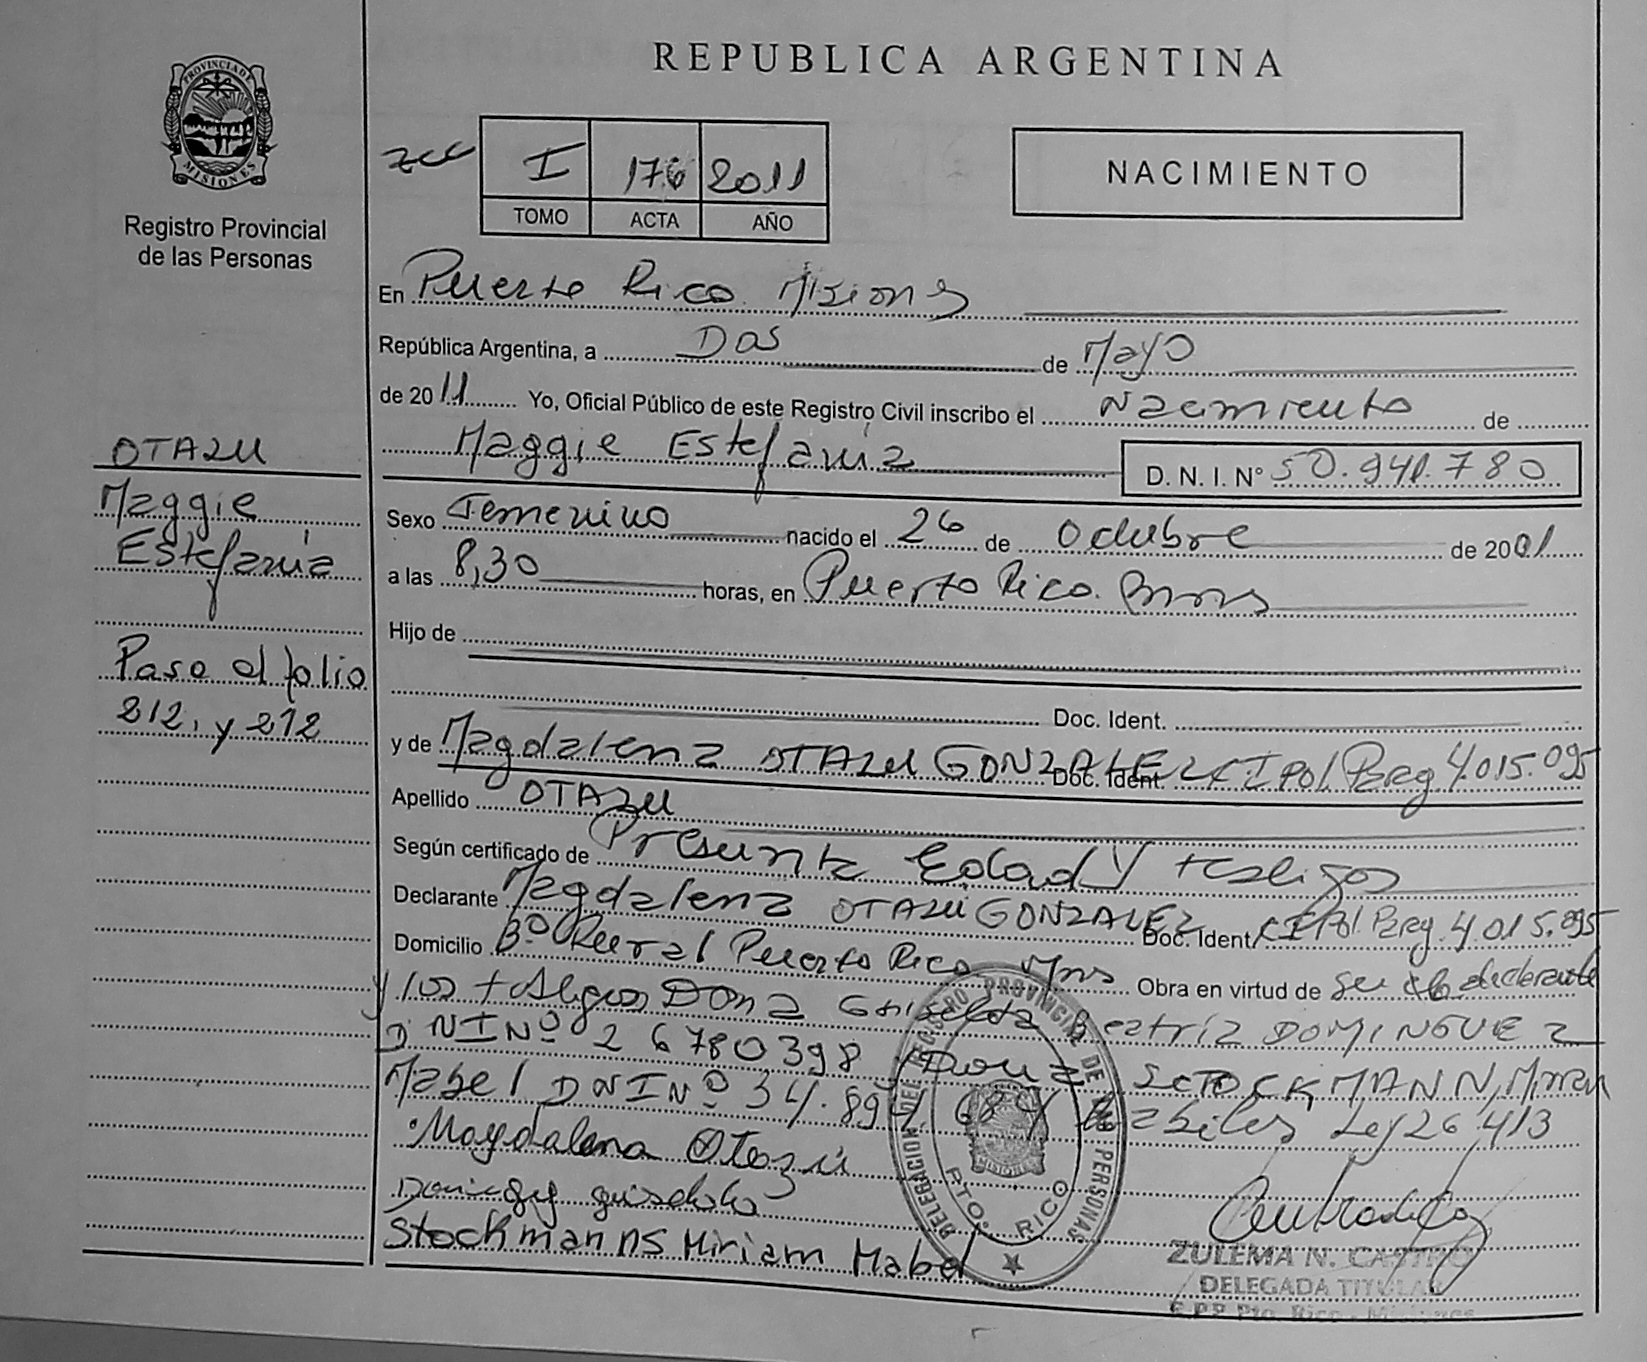 REPUBLICA ARGENTINA
PROVINCIA DE
MISIONES
Registro Provincial
de las Personas
I 176 2011
TOMO ACTA AÑO
NACIMIENTO
En Puerto Rico Misiones
República Argentina, a Dos de Mayo
de 2011 Yo, Oficial Público de este Registro Civil inscribo el Nacimiento de
Maggie Estefania D. N. I. Nº 50.941.780
Sexo Femenino nacido el 26 de Octubre de 2001
a las 8,30 horas, en Puerto Rico.
Hijo de
Doc. Ident.
y de Magdalena OTAZU GONZALEZ Doc. Ident. CI Pol. Parag 4.015.095
Apellido OTAZU
Según certificado de Presunta Edad y testigos
Declarante Magdalena OTAZU GONZALEZ Doc. Ident CI Pol. Parag. 4.015.095
Domicilio Bº Rural Puerto Rico Mns Obra en virtud de ser la declarante
y los testigos Dona Griselda Beatriz DOMINGUEZ
DNI Nº 26780398 y Dona SCTOCKMANN, Miriam
Mabel DNI Nº 34.894.684 Habiles Ley 26.413
Magdalena Otazú
Stockmanns Miriam Mabel
DELEGACION DEL REGISTRO PROVINCIAL DE LAS PERSONAS
MISIONES
PTO. RICO
ZULEMA N. CASTRO
DELEGADA TITULAR
R.P.P. Pto. Rico - Misiones
OTAZU
Maggie
Estefania
Pasa al folio
212, y 272